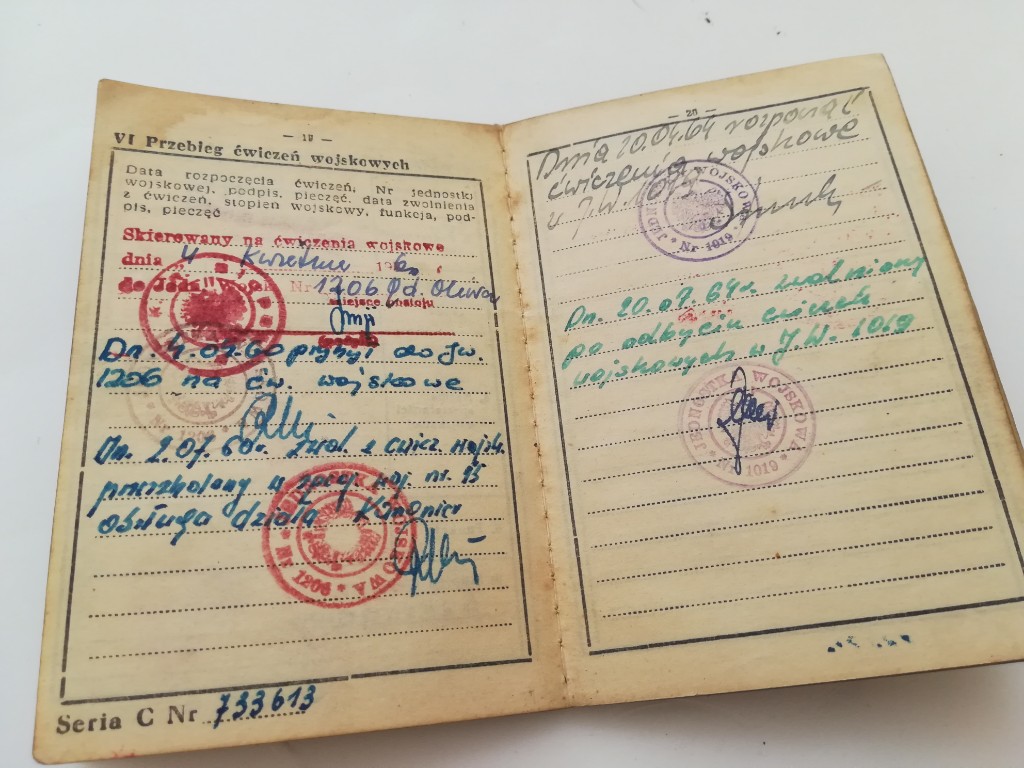 — 19 —
VI Przebieg ćwiczeń wojskowych
Data rozpoczęcia ćwiczeń, Nr jednostki
wojskowej, podpis, pieczęć, data zwolnienia
z ćwiczeń, stopień wojskowy, funkcja, pod-
pis, pieczęć
Skierowany na ćwiczenia wojskowe
dnia 4 kwietnia 196
do Jedn. Wojsk. Nr 1206
miejsce postoju
Dn. 4.04.60 przybył do Jw.
1206 na ćw. wojskowe
Dn. 2.07.60r. zwol. z ćwicz. wojsk.
przeszkolony w specj. woj. nr. 15
obsługa działa Kanonier
JEDNOSTKA WOJSKOWA * Nr 1206 *
Seria C Nr 733613
— 20 —
Dnia 20.04.64 rozpoczął
ćwiczenia wojskowe
w J.W. 1019
JEDNOSTKA WOJSKOWA * Nr 1019 *
Dn. 20.07.64r. zwolniony
po odbyciu ćwicz.
wojskowych w J.W. 1019
JEDNOSTKA WOJSKOWA * Nr 1019 *